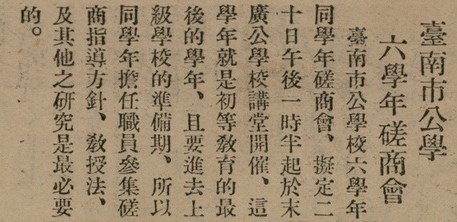 臺南市公學
六學年磋商會
臺南市公學校六學年
同學年磋商會、擬定二
十日午後一時半起於末
廣公學校講堂開催、這
學年就是初等敎育的最
後的學年、且要進去上
級學校的準備期、所以
同學年擔任職員參集磋
商指導方針、敎授法、
及其他之研究是最必要
的。